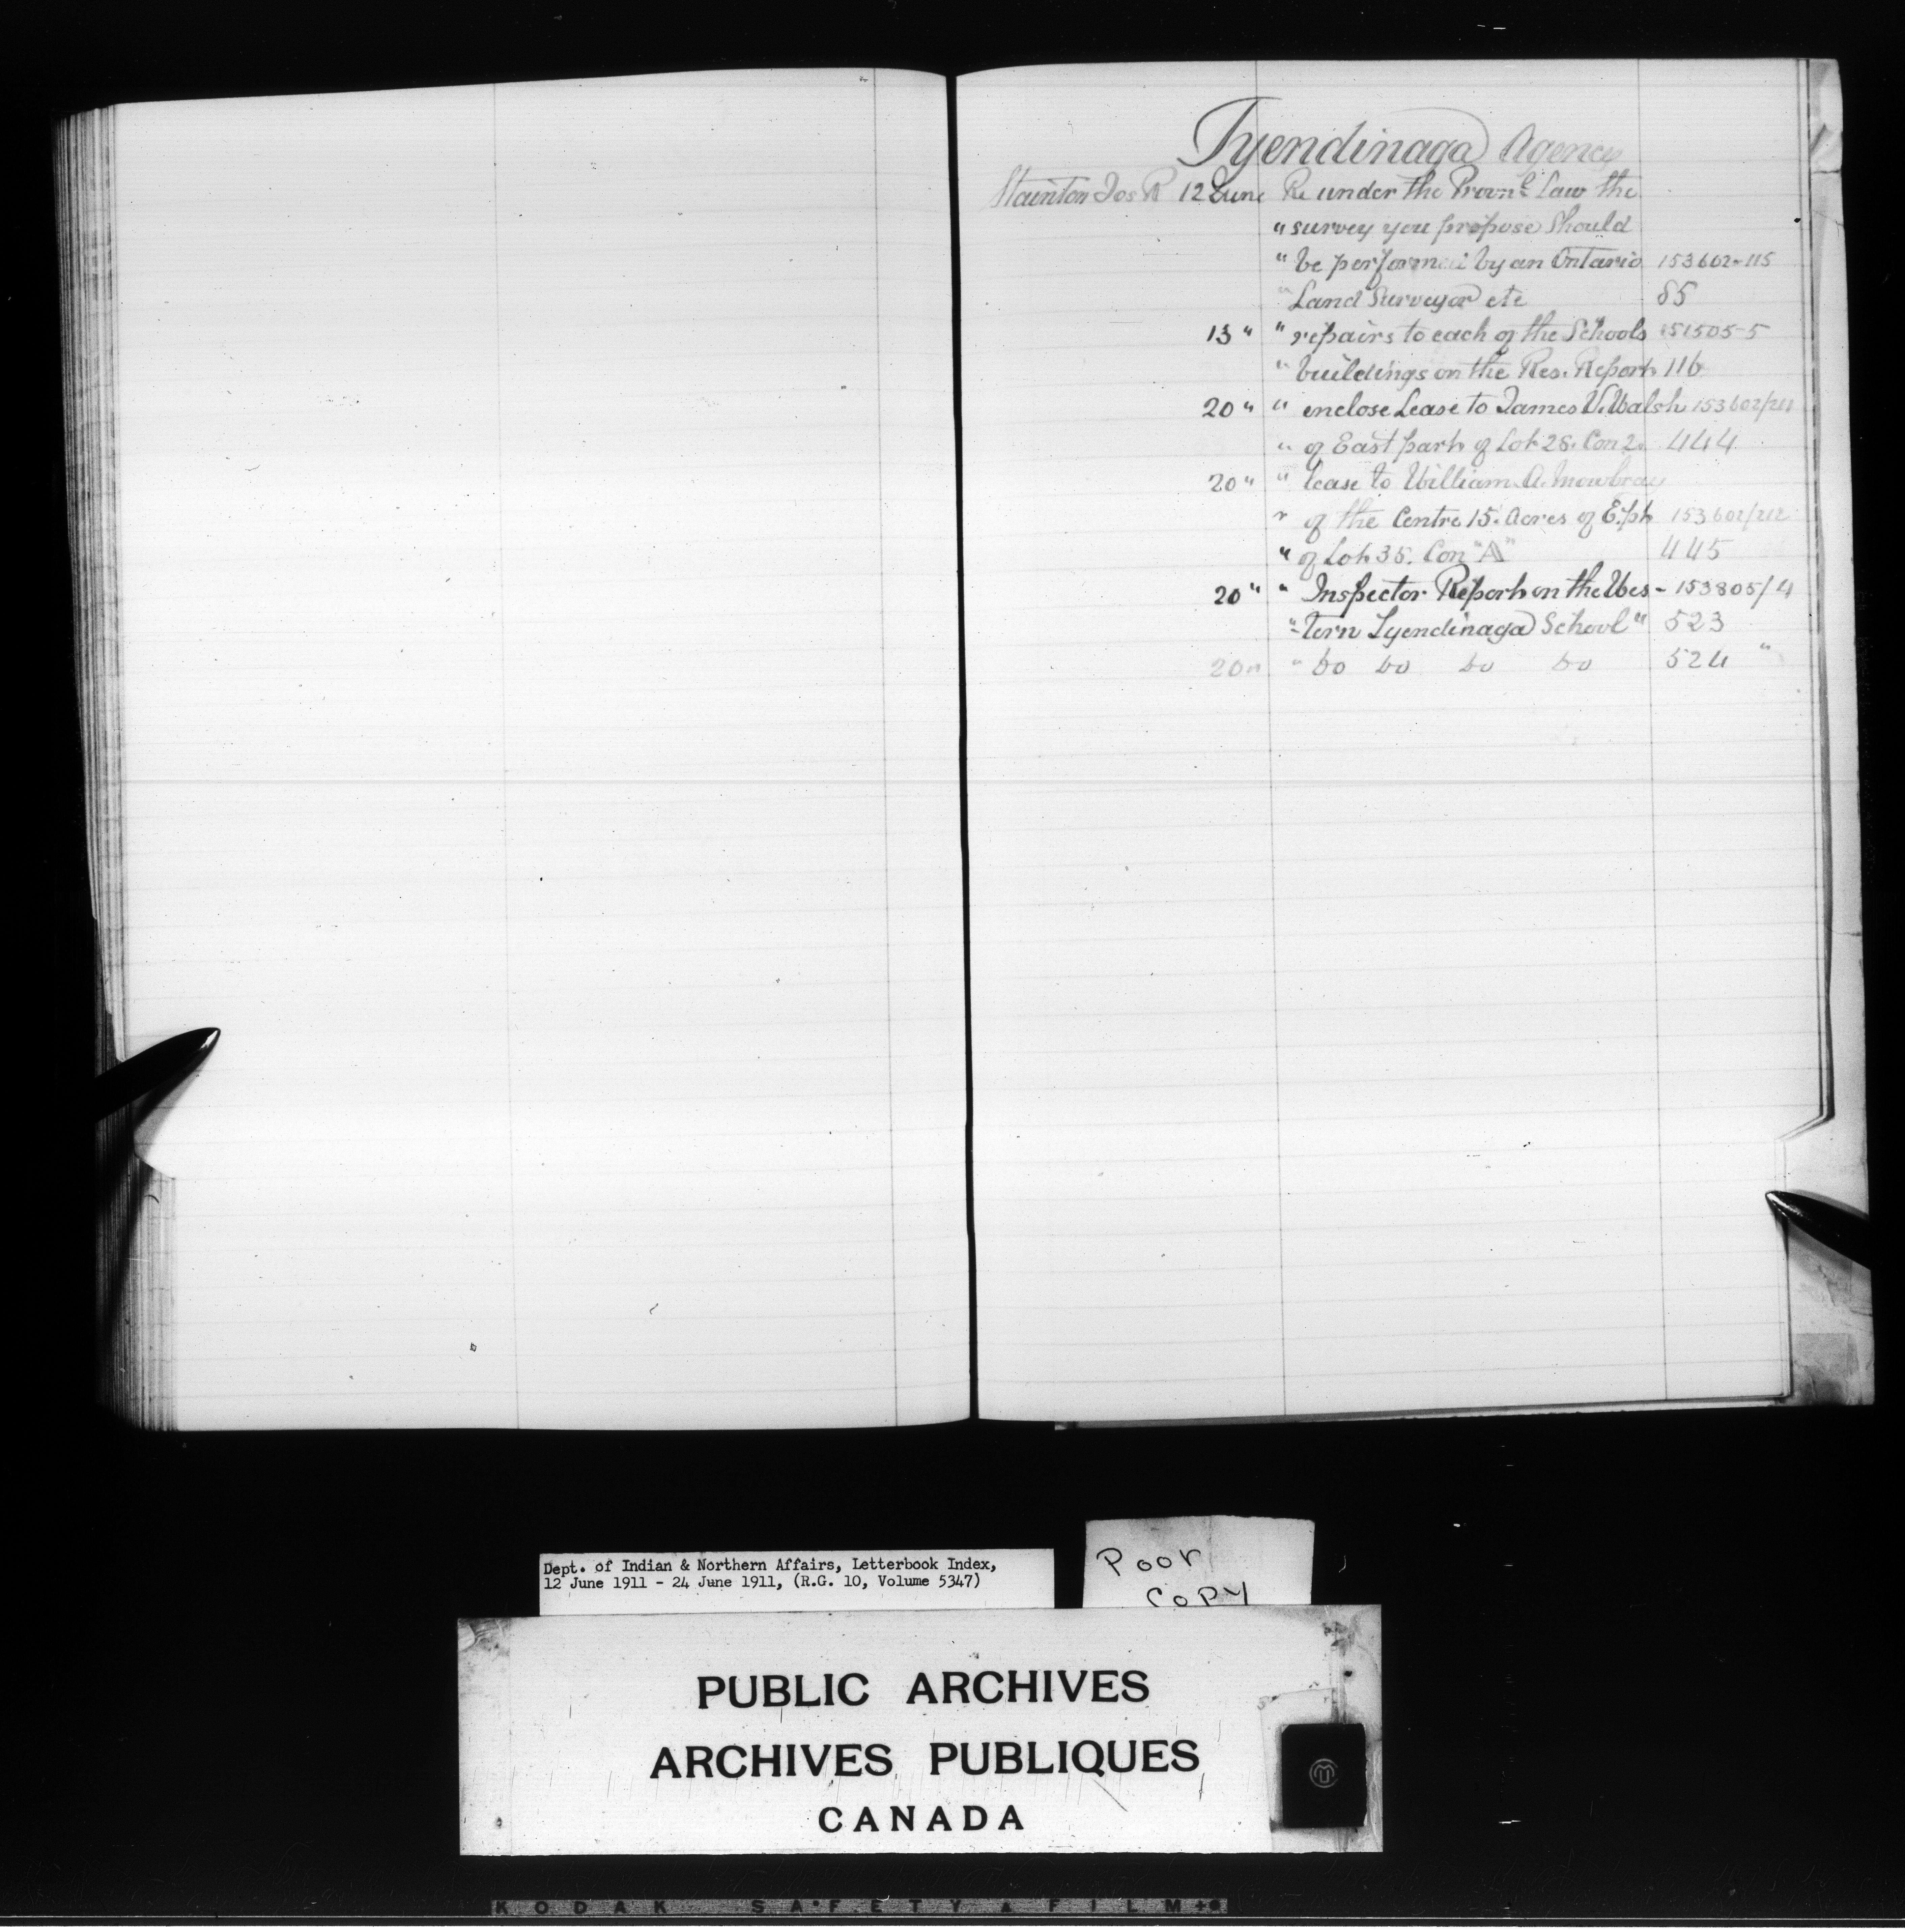 Tyendinaga Agency
Stainton Jos R 12 June Re under the Provnl Law the
" survey you propose Should
" be performed by an Ontario 153602-115
" Land Surveyor etc 85
13 " " repairs to each of the Schools 151505-5
" buildings on the Res. Report 116
20 " " enclose Lease to James V. Walsh 153602/211
" of East part of Lot 28. Con 2. 444
20 " " lease to William A. Mowbray
" of the Centre 15. Acres of E.pt 153602/212
" of Lot 35. Con "A" 445
20 " " Inspector Report on the Wes - 153805/4
"-tern Tyendinaga School " 523
20 " " Do Do Do Do 524 "
Dept. of Indian & Northern Affairs, Letterbook Index,
12 June 1911 - 24 June 1911, (R.G. 10, Volume 5347)
Poor
Copy
PUBLIC ARCHIVES
ARCHIVES PUBLIQUES
CANADA
KODAK SAFETY FILM